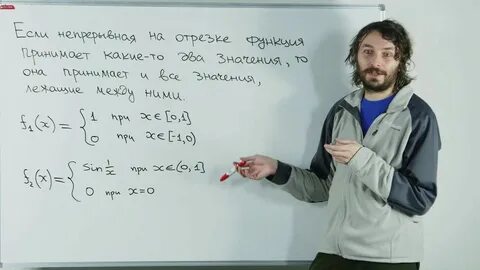 Если непрерывная на отрезке функция
принимает какие-то два значения, то
она принимает и все значения,
лежащие между ними.
f₁(x) = { 1 при x∈[0,1]
0 при x∈[-1,0)
f₂(x) = { sin 1/x при x∈(0,1]
0 при x=0